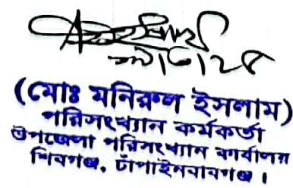 (মোঃ মনিরুল ইসলাম)
পরিসংখ্যান কর্মকর্তা
উপজেলা পরিসংখ্যান কার্যালয়
শিবগঞ্জ, চাঁপাইনবাবগঞ্জ।